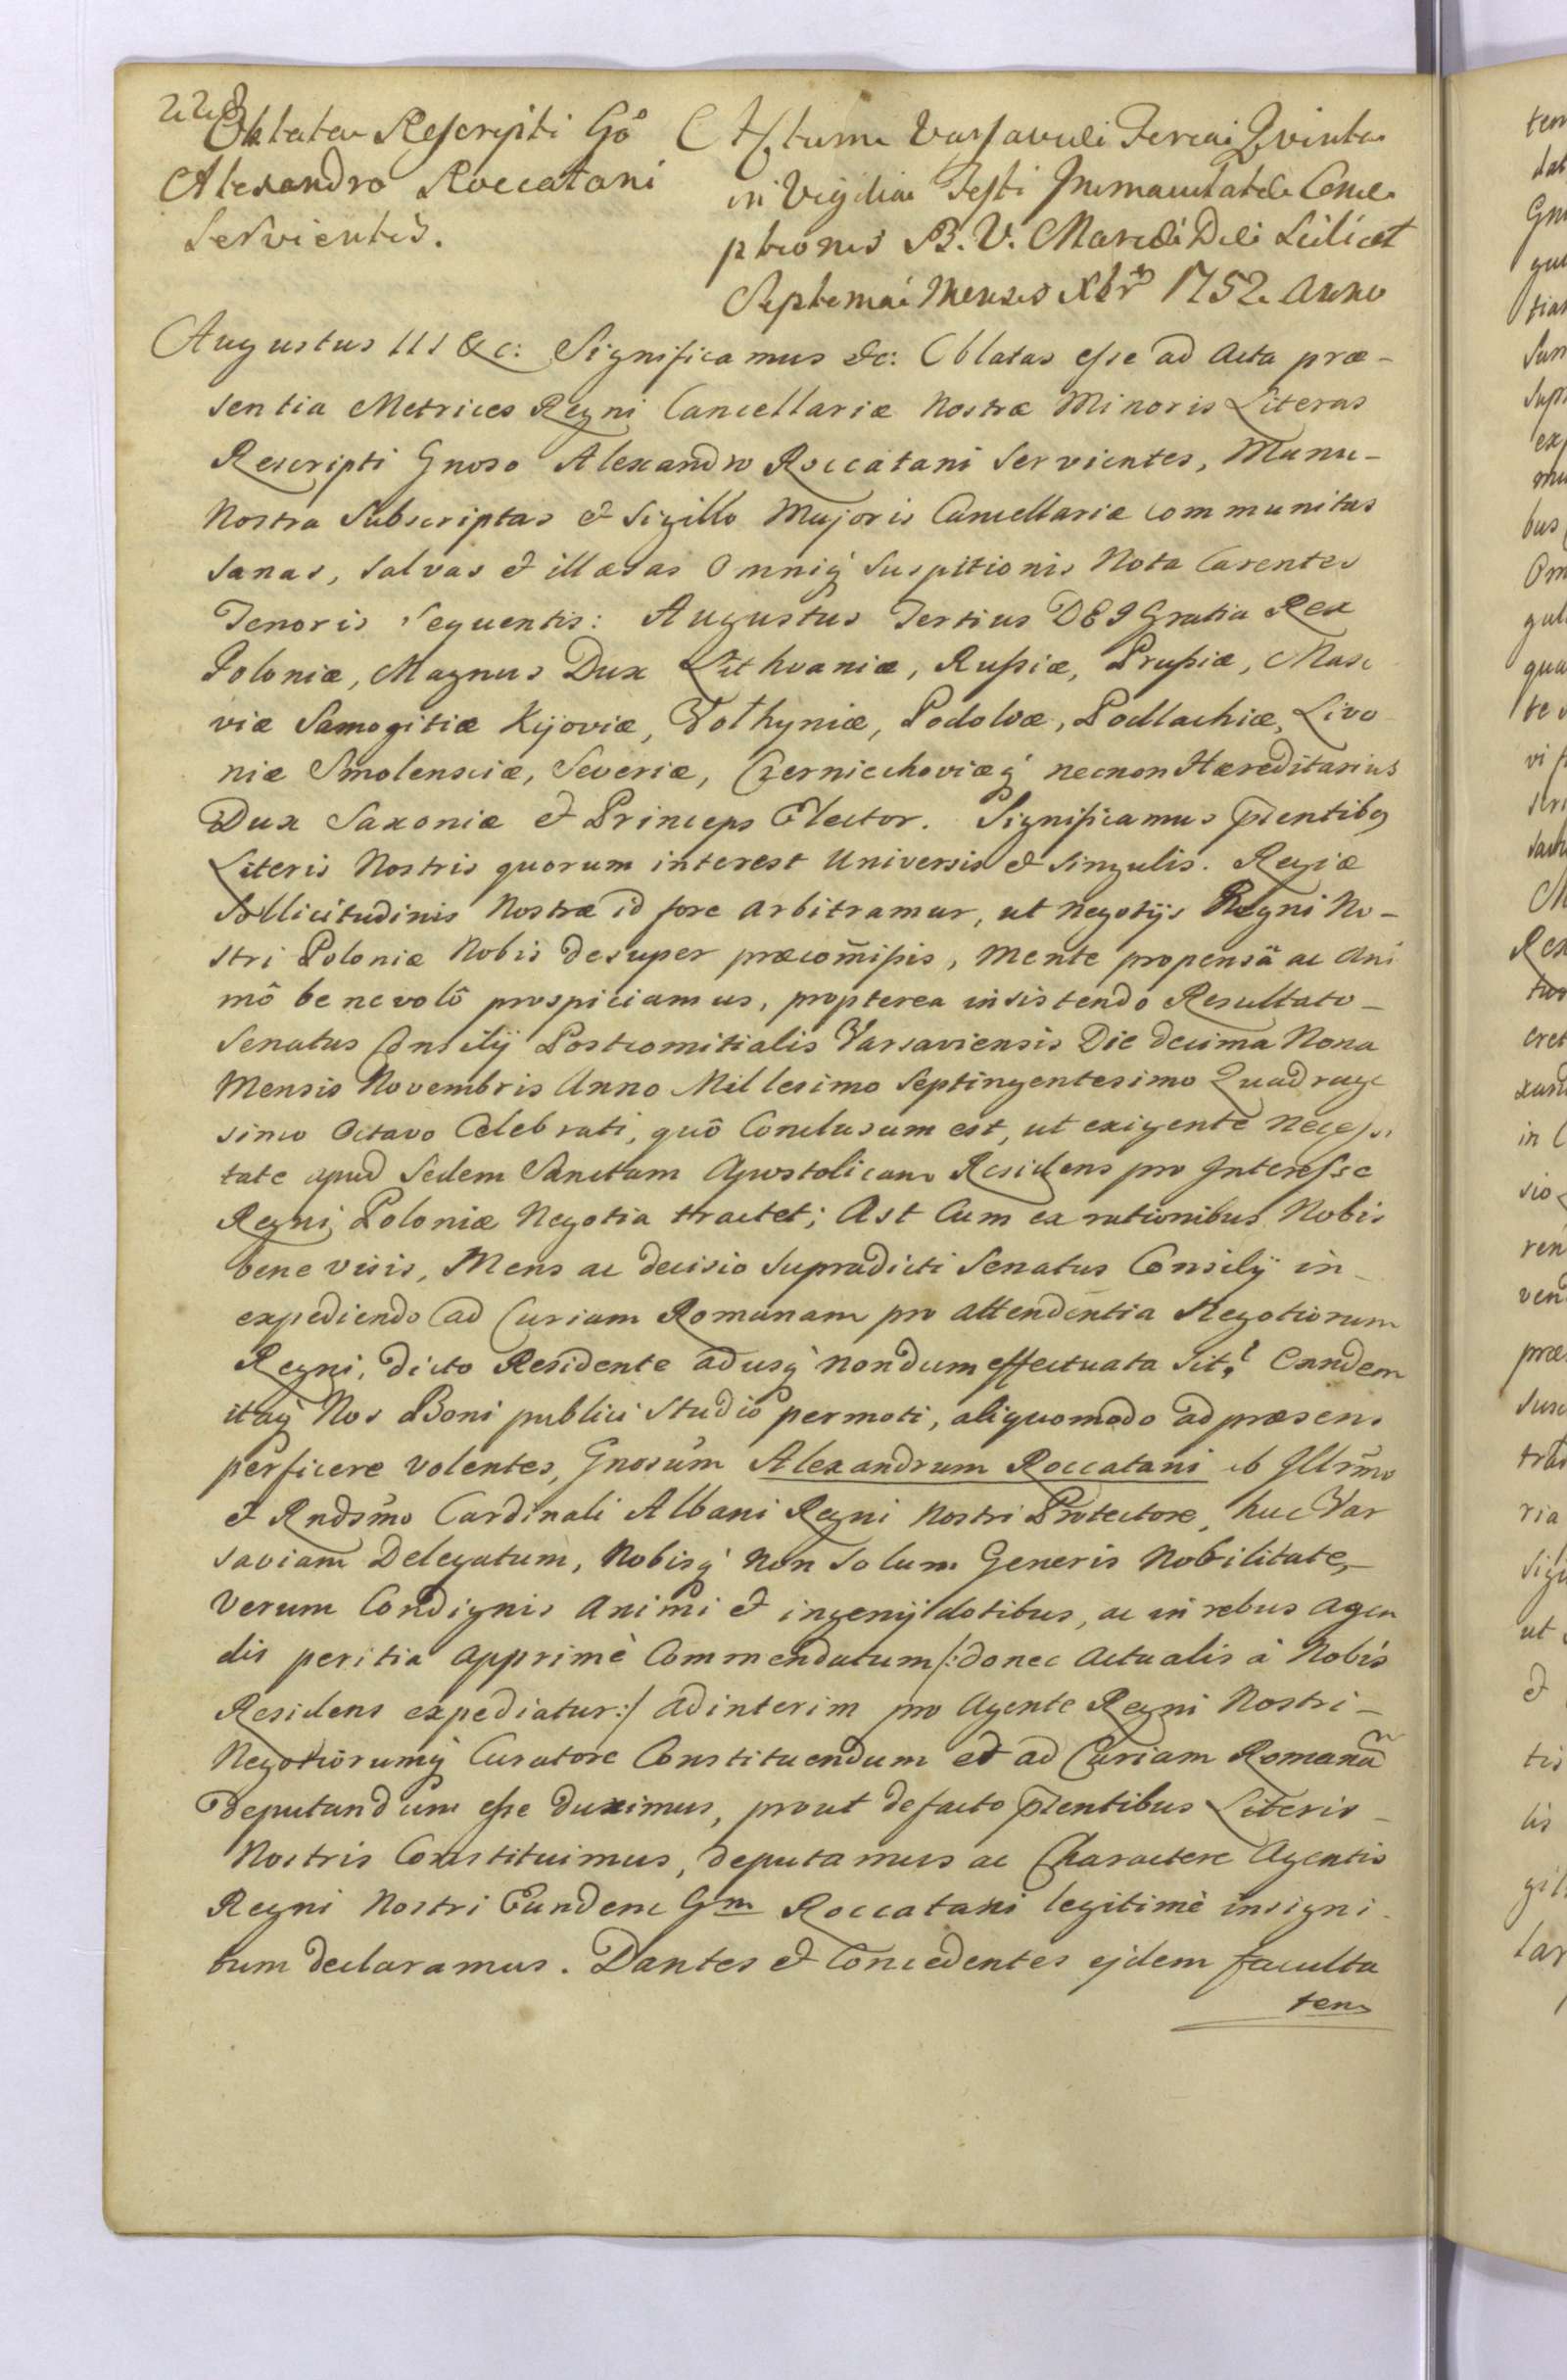 228
Oblata Rescripti Gō
Alexandro Roccatani
Servientis.
Actum Varsaviæ Feria Quinta
in Vigilia Festi Immaculatæ Conce
ptionis B. V. Mariæ Die Scilicet
Septema Mensis Xbris 1752. Anno
Augustus III &c: Significamus &c: Oblatas esse ad Acta præ-
sentia Metrices Regni Cancellariæ Nostræ Minoris Literas
Rescripti Gnoso Alexandro Roccatani Servientes, Manu-
Nostra Subscriptas & Sigillo Majoris Cancellariæ communitas
Sanas, Salvas & illæsas Omniq́ Suspitionis Nota Carentes
Tenoris Sequentis: Augustus Tertius DEI Gratia Rex
Poloniæ, Magnus Dux Lithvaniæ, Russiæ, Prussiæ, Maso
viæ Samogitiæ Kijoviæ, Volhyniæ, Podoliæ, Podlachiæ, Livo
niæ Smolensciæ, Severiæ, Czerniechoviæq́ necnon Hæreditarius
Dux Saxoniæ & Princeps Elector. Significamus p̄sentibq
Literis Nostris quorum interest Universis & Singulis. Regiæ
Sollicitudinis Nostræ id fore arbitramur, ut negotijs Regni No-
stri Poloniæ Nobis desuper præcom̄issis, mente propensâ ac Ani
mô benevolô prospiciamus, propterea insistendo Resultato-
Senatus Consilij Postcomitialis Varsaviensis Die decima Nona
Mensis Novembris Anno Millesimo Septingentesimo Quadrage
simo Octavo Celebrati, quô Conclusum est, ut exigente necessi
tate apud Sedem Sanctam Apostolicam Residens pro Interesse
Regni Poloniæ Negotia tractet; Ast Cum ex rationibus Nobis
bene visis, Mens ac decisio Supradicti Senatus Consilij in-
expediendo ad Curiam Romanam pro attendentia Negotiorum
Regni, dicto Residente adusq́ nondum effectuata sit, Eandem
itaq́ Nos Boni publici Studio permoti, aliquomodo ad præsens
perficere volentes, Gnosum̄ Alexandrum Roccatani ab Illr̄mo
& Rndsm̄o Cardinali Albani Regni Nostri Protectore, huc Var
saviam Delegatum, Nobisq́ Non Solum Generis Nobilitate,-
Verum Condignis Animi & ingenij dotibus, ac in rebus agen
dis peritia apprimè Commendatum /: donec Actualis à Nobis
Residens expediatur :/ adinterim pro Agente Regni Nostri-
Negotiorumq́ Curatore Constituendum et ad Curiam Romanã
deputandum esse duximus, prout defacto p̄sentibus Literis-
Nostris Constituimus, deputamus ac Charactere Agentis
Regni Nostri Eundem Gm Roccatani legitimè insigni-
tum declaramus. Dantes & Concedentes ejdem faculta
tem